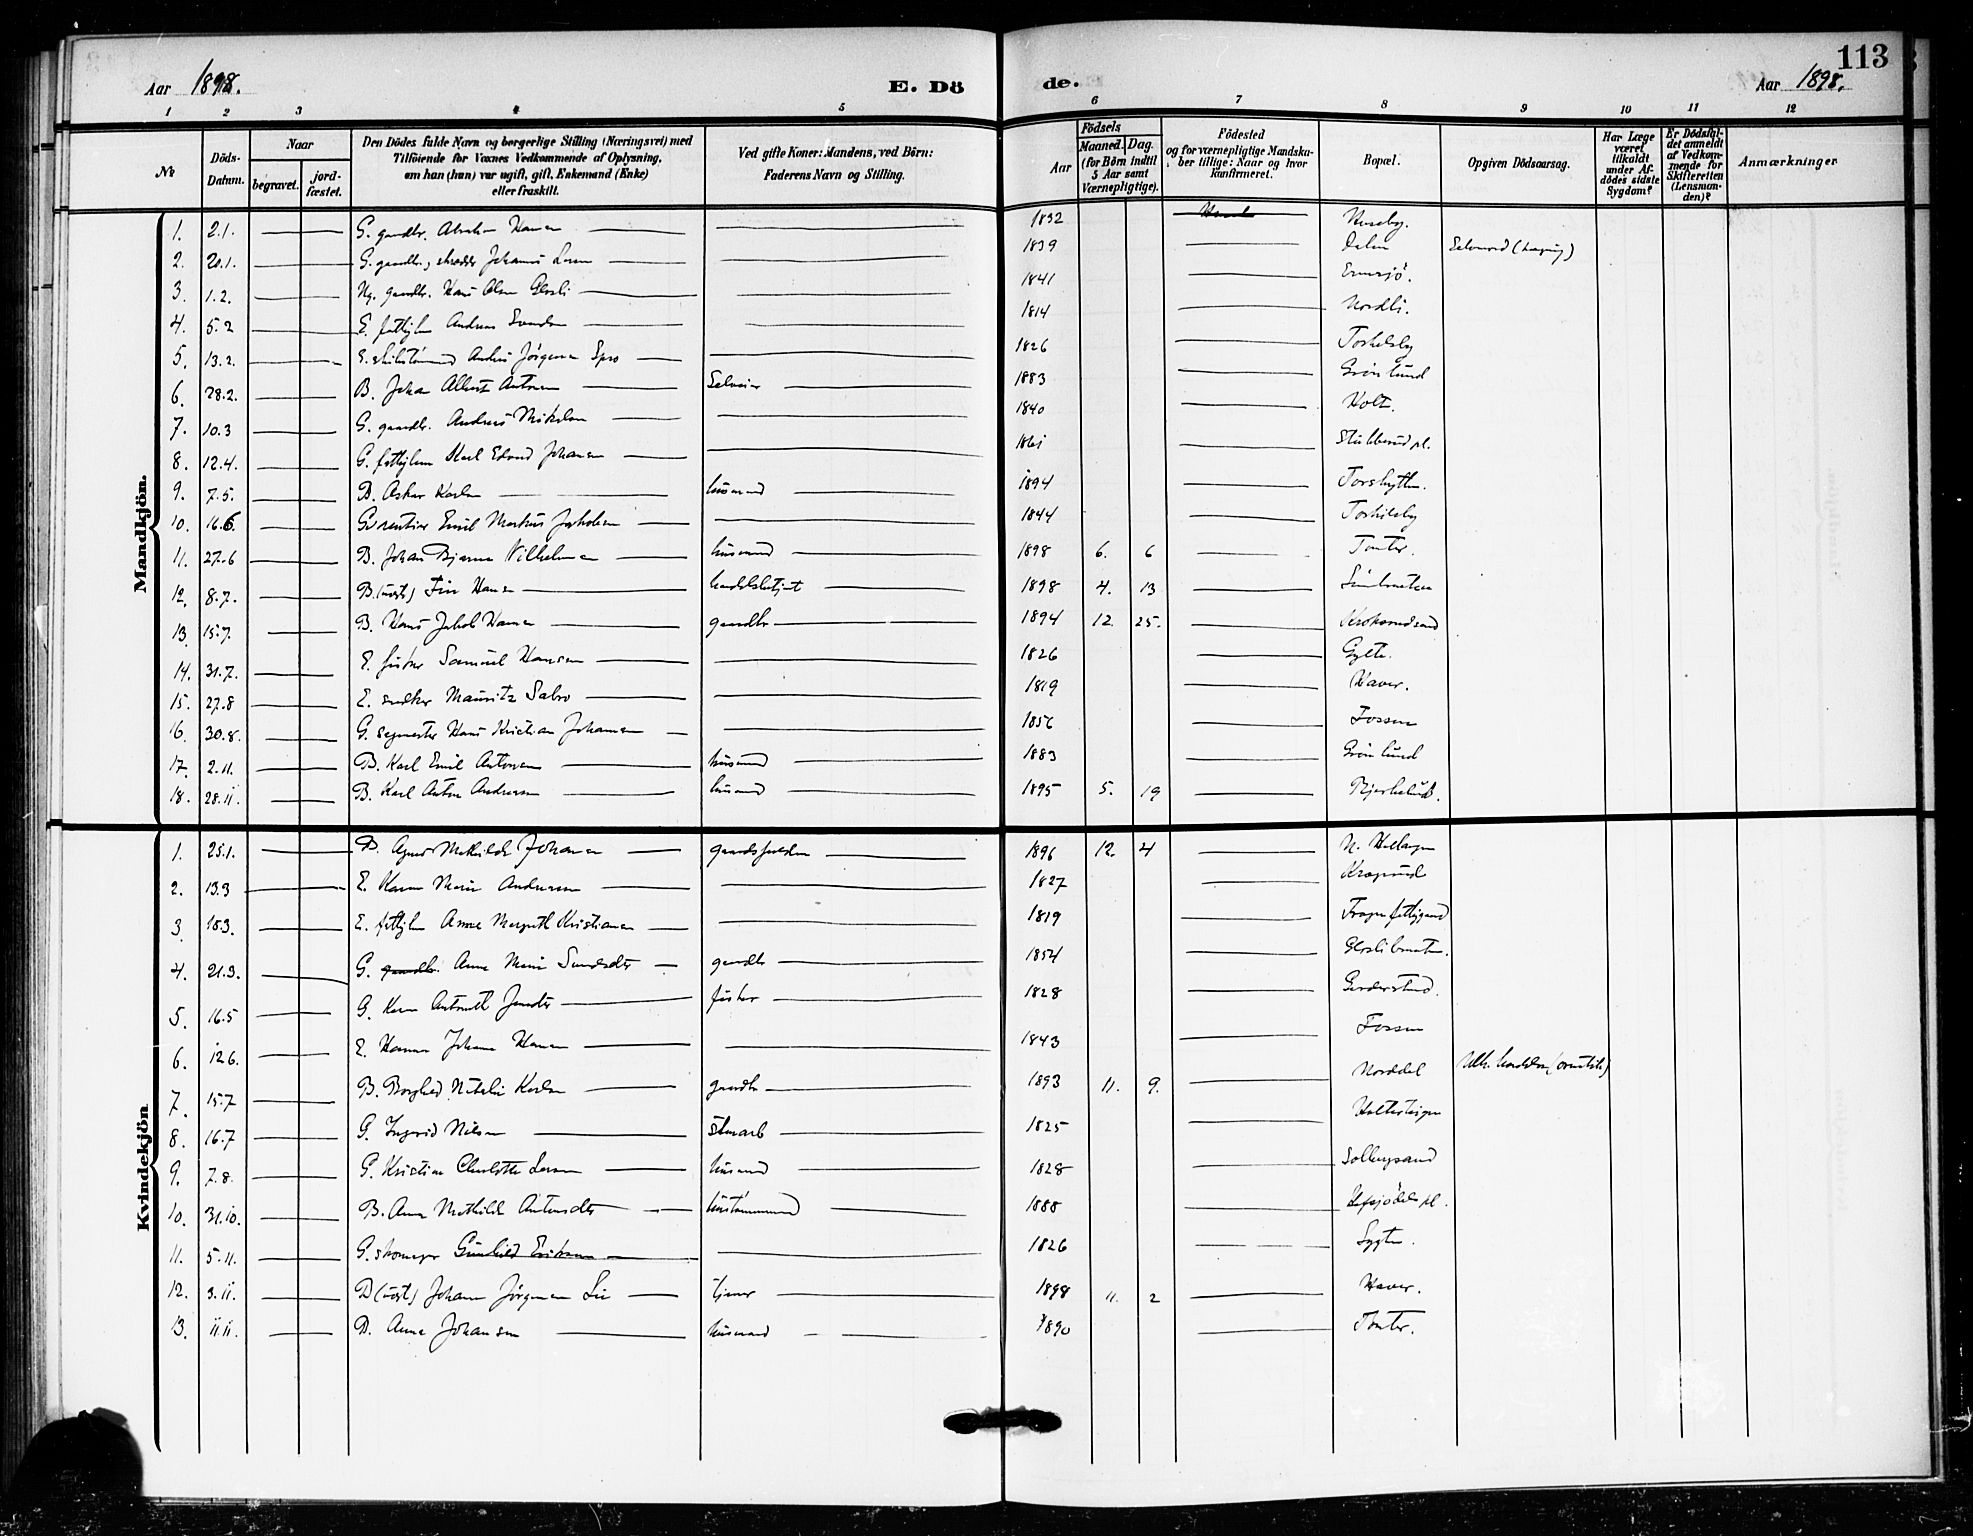 113
Aar 1898.
E. Dö
de.
Aar 1898.
1 2 3 4 5 6 7 8 9 10 11 12
No
Döds-Datum.
Naar
begravet.
jord-fæstet.
Den Dödes fulde Navn og borgerlige Stilling (Næringsvei) med
Tilföiende for Voxnes Vedkommende af Oplysning,
om han (hun) var ugift, gift, Enkemand (Enke)
eller fraskilt.
Ved gifte Koner: Mandens, ved Börn:
Faderens Navn og Stilling.
Födsels
Aar
Maaned. Dag.
(for Börn indtil
5 Aar samt
Værnepligtige).
Födested
og for værnepligtige Mandska-
ber tillige: Naar og hvor
konfirmeret.
Bopæl.
Opgiven Dödsaarsag.
Har Læge
været
tilkaldt
under Af-
dödes sidste
Sygdom?
Er Dödsfal-
det anmeldt
af Vedkom-
mende for
Skifteretten
(Lensman-
den)?
Anmærkninger
Mandkjön.
1. 2.1. G. gaardbr. Abraham Hansen 1832 Huseby.
2. 20.1. G. gaardbr., skrædder Johannes Larsen 1839 Dalen Selvmord (hængning)
3 1.2. Ug. gaardbr. Hans Olsen Glosli 1841 Ermesjö.
4. 5.2 E. fattiglem Andreas Evensen 1814 Nordli.
5. 13.2. E. Anders Jörgensen Spro 1826 Torkilsby
6. 28.2. B. Johan Albert Antonsen Selveier 1883 Grönlund
7. 10.3 G. gaardbr. Andreas Mikkelsen 1840 Holt.
8. 12.4. G. fattiglem Karl Edvard Johansen 1861 Stubberud pl.
9. 7.5. B. Asker Karlsen husmand 1894 Torshytten.
10. 16.6. G. rentier Emil Markus Jakobsen 1844 Torkilsby
11. 27.6 B. Johan Bjarne Vilhelmsen husmand 1898 6. 6 Tomter.
12. 8.7. B. (uægte) Finn Hansen handelsbetjent 1898 4. 13
13. 15.7. B. Hans Jakob Hansen gaardbr 1894 12. 25. Kroksrudsand
14. 31.7. E. fisker Samuel Hansen 1826 Gylte.
15. 27.8 E. snedker Mauritz Sabro 1819 Haver.
16. 30.8. G. sagmester Hans Kristian Johansen 1856 Fossen
17. 2.11. B. Karl Emil Antonsen husmand 1883 Grönlund
18. 28.11. B. Karl Anton Andersen husmand 1895 5. 19
Kvindekjön
1. 25.1. B. Agnes Mathilde Johansen 1896 12. 4 N. Hallangen
2. 13.3 E. Karen Marie Andersen 1827 Kragerud
3. 15.3. E. fattiglem Anne Margreth Kristiansen 1819 Frogn fattiggaard
4. 21.3. G. gaardbr. Anne Marie gaardbr 1854 Gloslibraaten.
5. 16.5 G. Karen fisker 1828
6. 12.6. E. Hanna Johanne Hansen 1843 Fossen
7. 15.7 B. Borghild Natalie Karlsen gaardbr 1893 11. 9. Norddal
8. 16.7 G. Ingrid Nilsen 1825 Holterteigen
9. 7.8. G. Kristine Charlotte Larsen husmand 1828 Solbergsand
10. 31.10. B. Anna Mathilde Antonsdtr 1888
11. 5.11. G. skomager Gunhild Eriksen 1826
12. 3.11. D. (uægte) Johanne Jörgensen Lie tjener 1898 11. 2 Haver.
13. 11.11. B. Anna Johansen husmand 1890 Tomter.